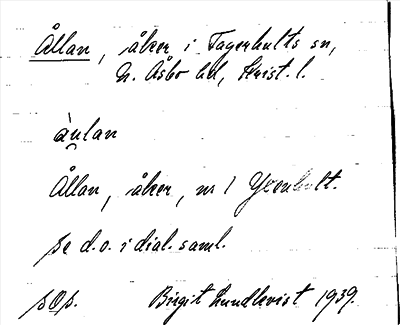 Ållan, åker i Fagerhults sn,
N. Åsbo hd, Krist. l.
àu̯lan
Ållan, åker, nr 1
se d. o. i dial. saml.
Birgit Lundkvist 1939.